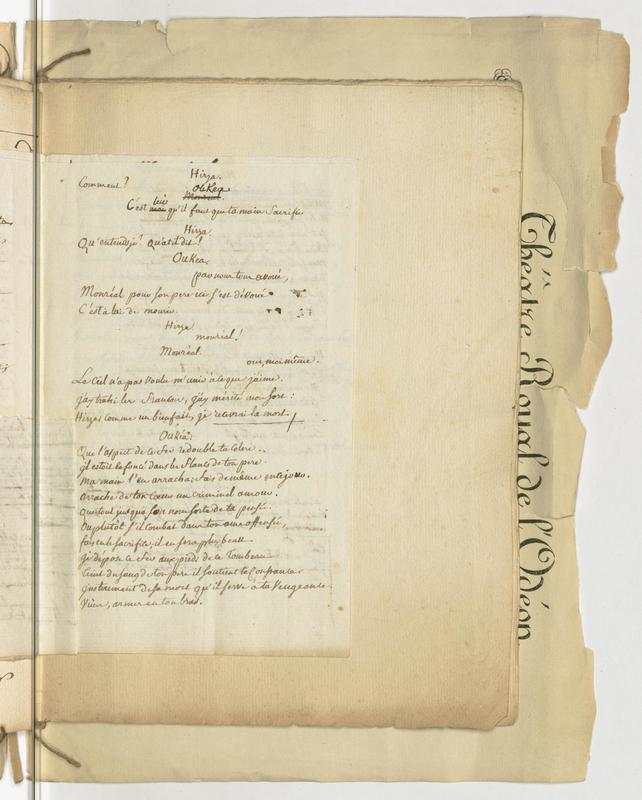 Hirza.
Comment?
Oukea
Monreal.
lui
C'est moi qu'il faut que ta main sacrifie
Hirza.
Qu'entends-je? Qu'at'il dit!
Oukea.
par nous tous avoué,
Monréal pour son pere ici s'est dévoué
C'est à lui de mourir.
Hirza
monréal!
Monréal.
oui, moi même.
Le Ciel n'a pas voulu m'unir à ce que j'aime.
j'ay trahi les
j'ay mérité mon sort:
Hirza comme un bienfait, je recevrai la mort.
Oukéa.
Que l'aspect de ce fer redouble ta colere..
il estoit enfoncé dans les flancs de ton pere
Ma main l'en arracha; fais de même
arrache de ton coeur un criminel amour.
que tout jusqu'à son nom sorte de ta pensée.
Ou plutôt s'il combat dans ton ame offensée,
fais en le sacrifice, il en sera plus beau
je dépose ce fer aux pieds de ce Tombeau
teint du sang de ton pere il soutient ta Constance
instrument de sa mort qu'il serve à ta Vengeance
Viens, armer ton bras.
Théâtre Royal de l'Odéon